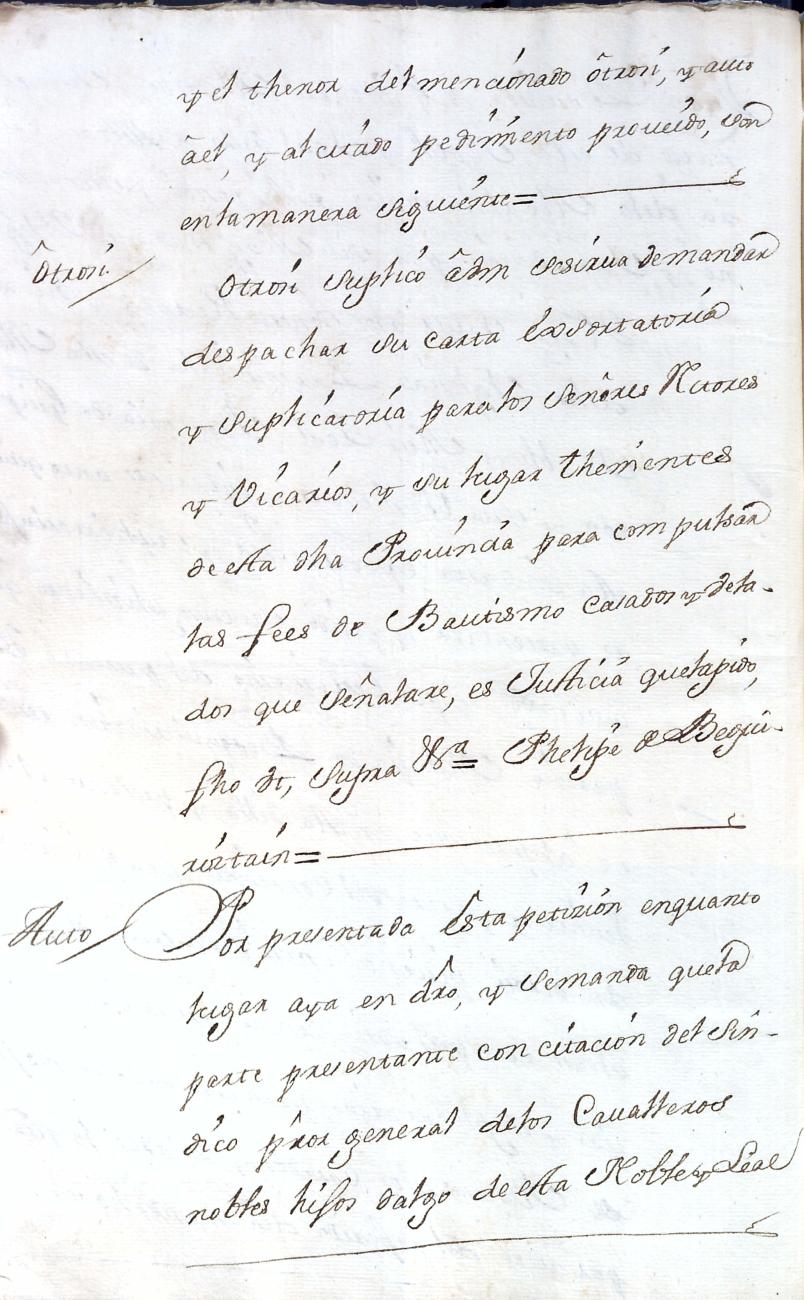 y el thenor del mencionado ôtrosi, y auto
âel, y al citado pedimento proveido, son
enlamanera siguiente=
Ôtrosi.
Otrosi suplico âdm sesirua demandar
despachar su carta êxsortatoria
y suplicatoria paralos señores Rctores
y Vicarios, y su lugar thenientes
de esta dha Provincia para compulsar
las fees de Bautismo casados y vela-
dos que señalare, es Justicia quelapido,
fho Vt, supra Phelipe de Begui-
riztain=
Auto
Por presentada êsta petizion enquanto
lugar aya en dro, y semanda quela
parte presentante con citacion del sin-
dico pror general delos Cavalleros
nobles hijos dalgo de esta Noble y Leal